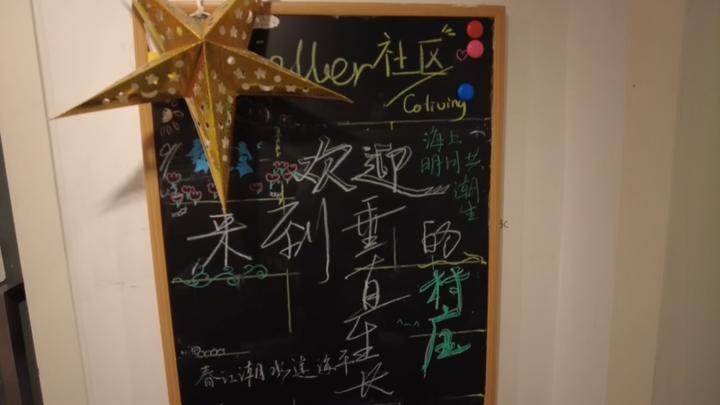 社区
Coliving
欢迎
来到垂直生长的村庄
海上明月共潮生
春江潮水连海平